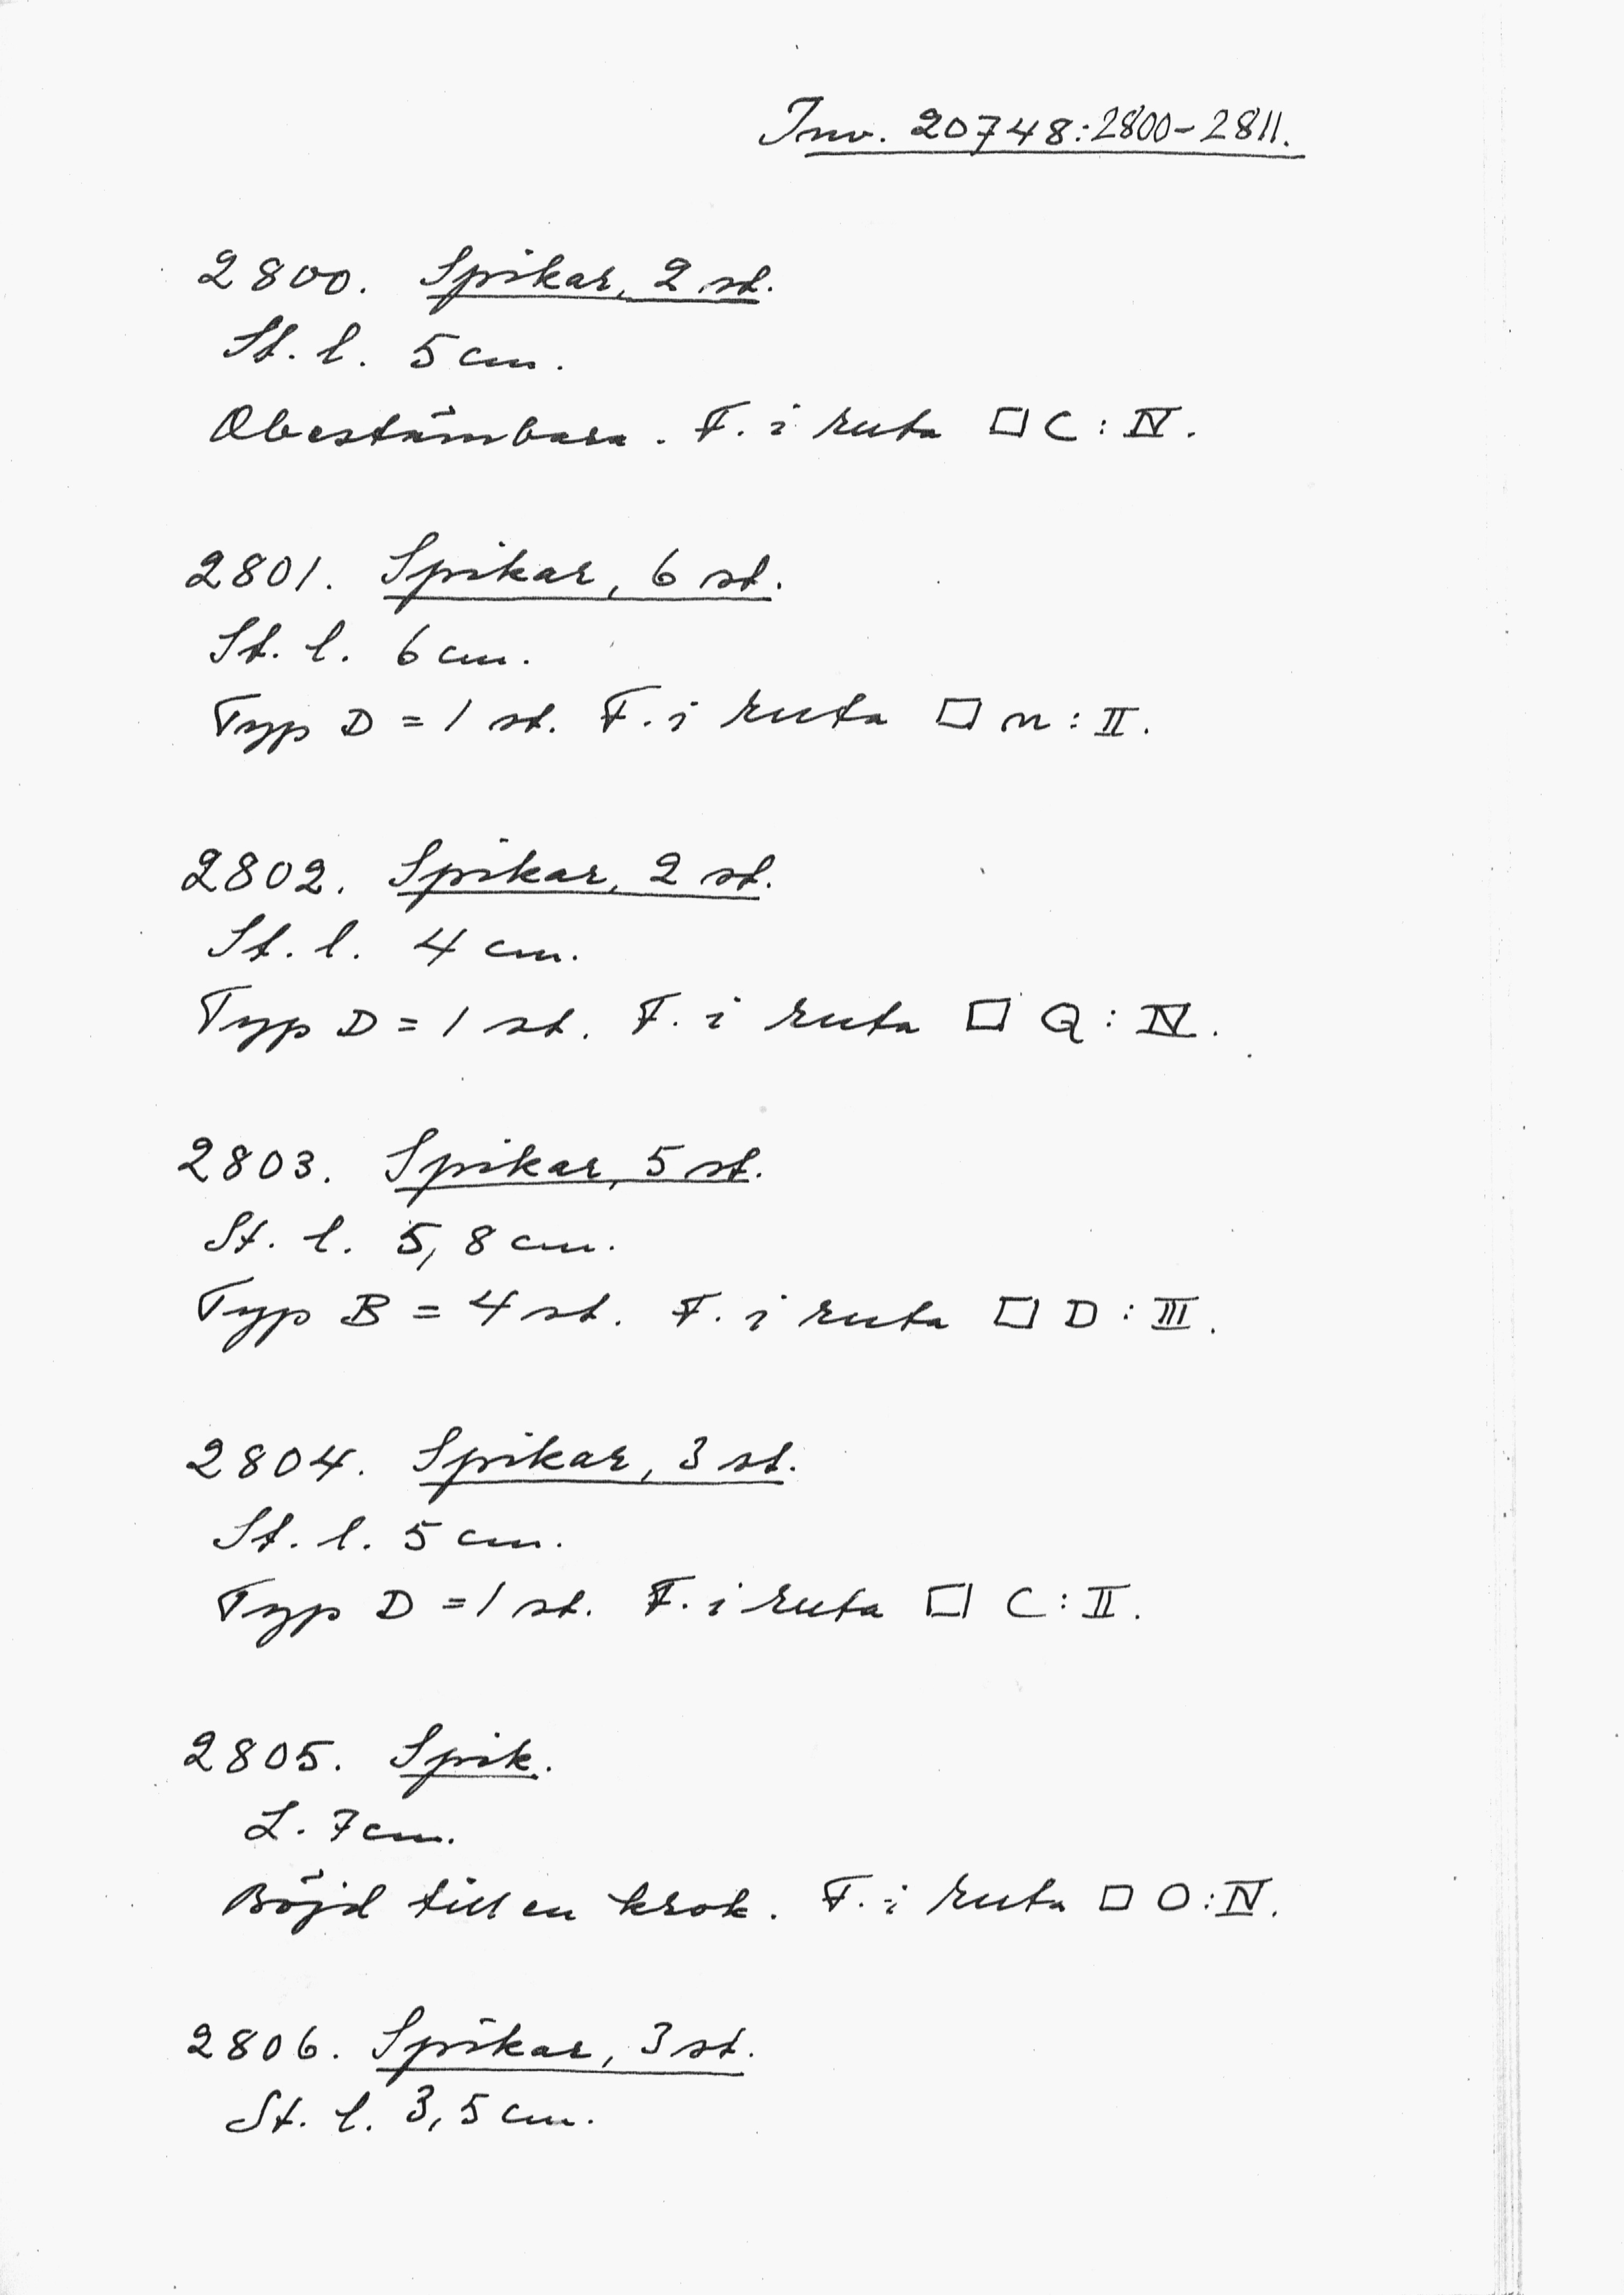 Inv. 20748:2800-2811.
2800. Spikar, 2 st.
St. l. 5 cm.
Obestämbara. F. i ruta □ C : IV.
2801. Spikar, 6 st.
St. l. 6 cm.
Typ D = 1 st. F. i ruta □ n : II.
2802. Spikar, 2 st.
St. l. 4 cm.
Typ D = 1 st. F. i ruta □ Q : IV.
2803. Spikar, 5 st.
St. l. 5,8 cm.
Typ B = 4 st. F. i ruta □ D : III.
2804. Spikar, 3 st.
St. l. 5 cm.
Typ D = 1 st. F. i ruta □ C : II.
2805. Spik.
L. 7 cm.
Böjd till en krok. F. i ruta □ O : IV.
2806. Spikar, 3 st.
St. l. 3,5 cm.